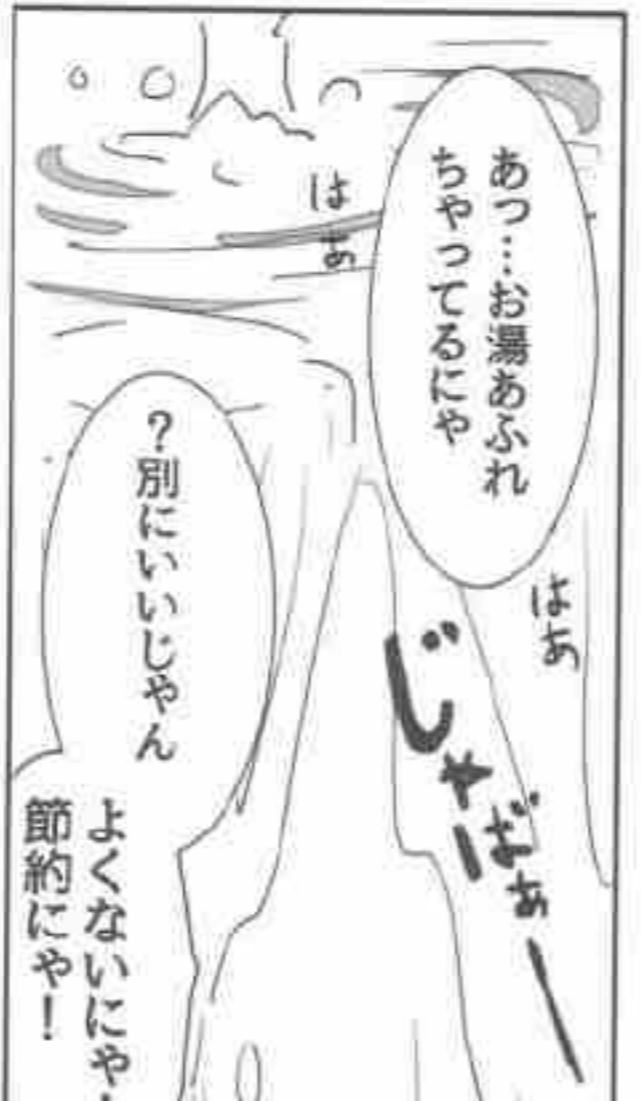 あっ…お湯あふれ
ちゃってるにゃ
はぁ
はぁ
じゃばぁー
？別にいいじゃん
よくないにゃ！
節約にゃ！